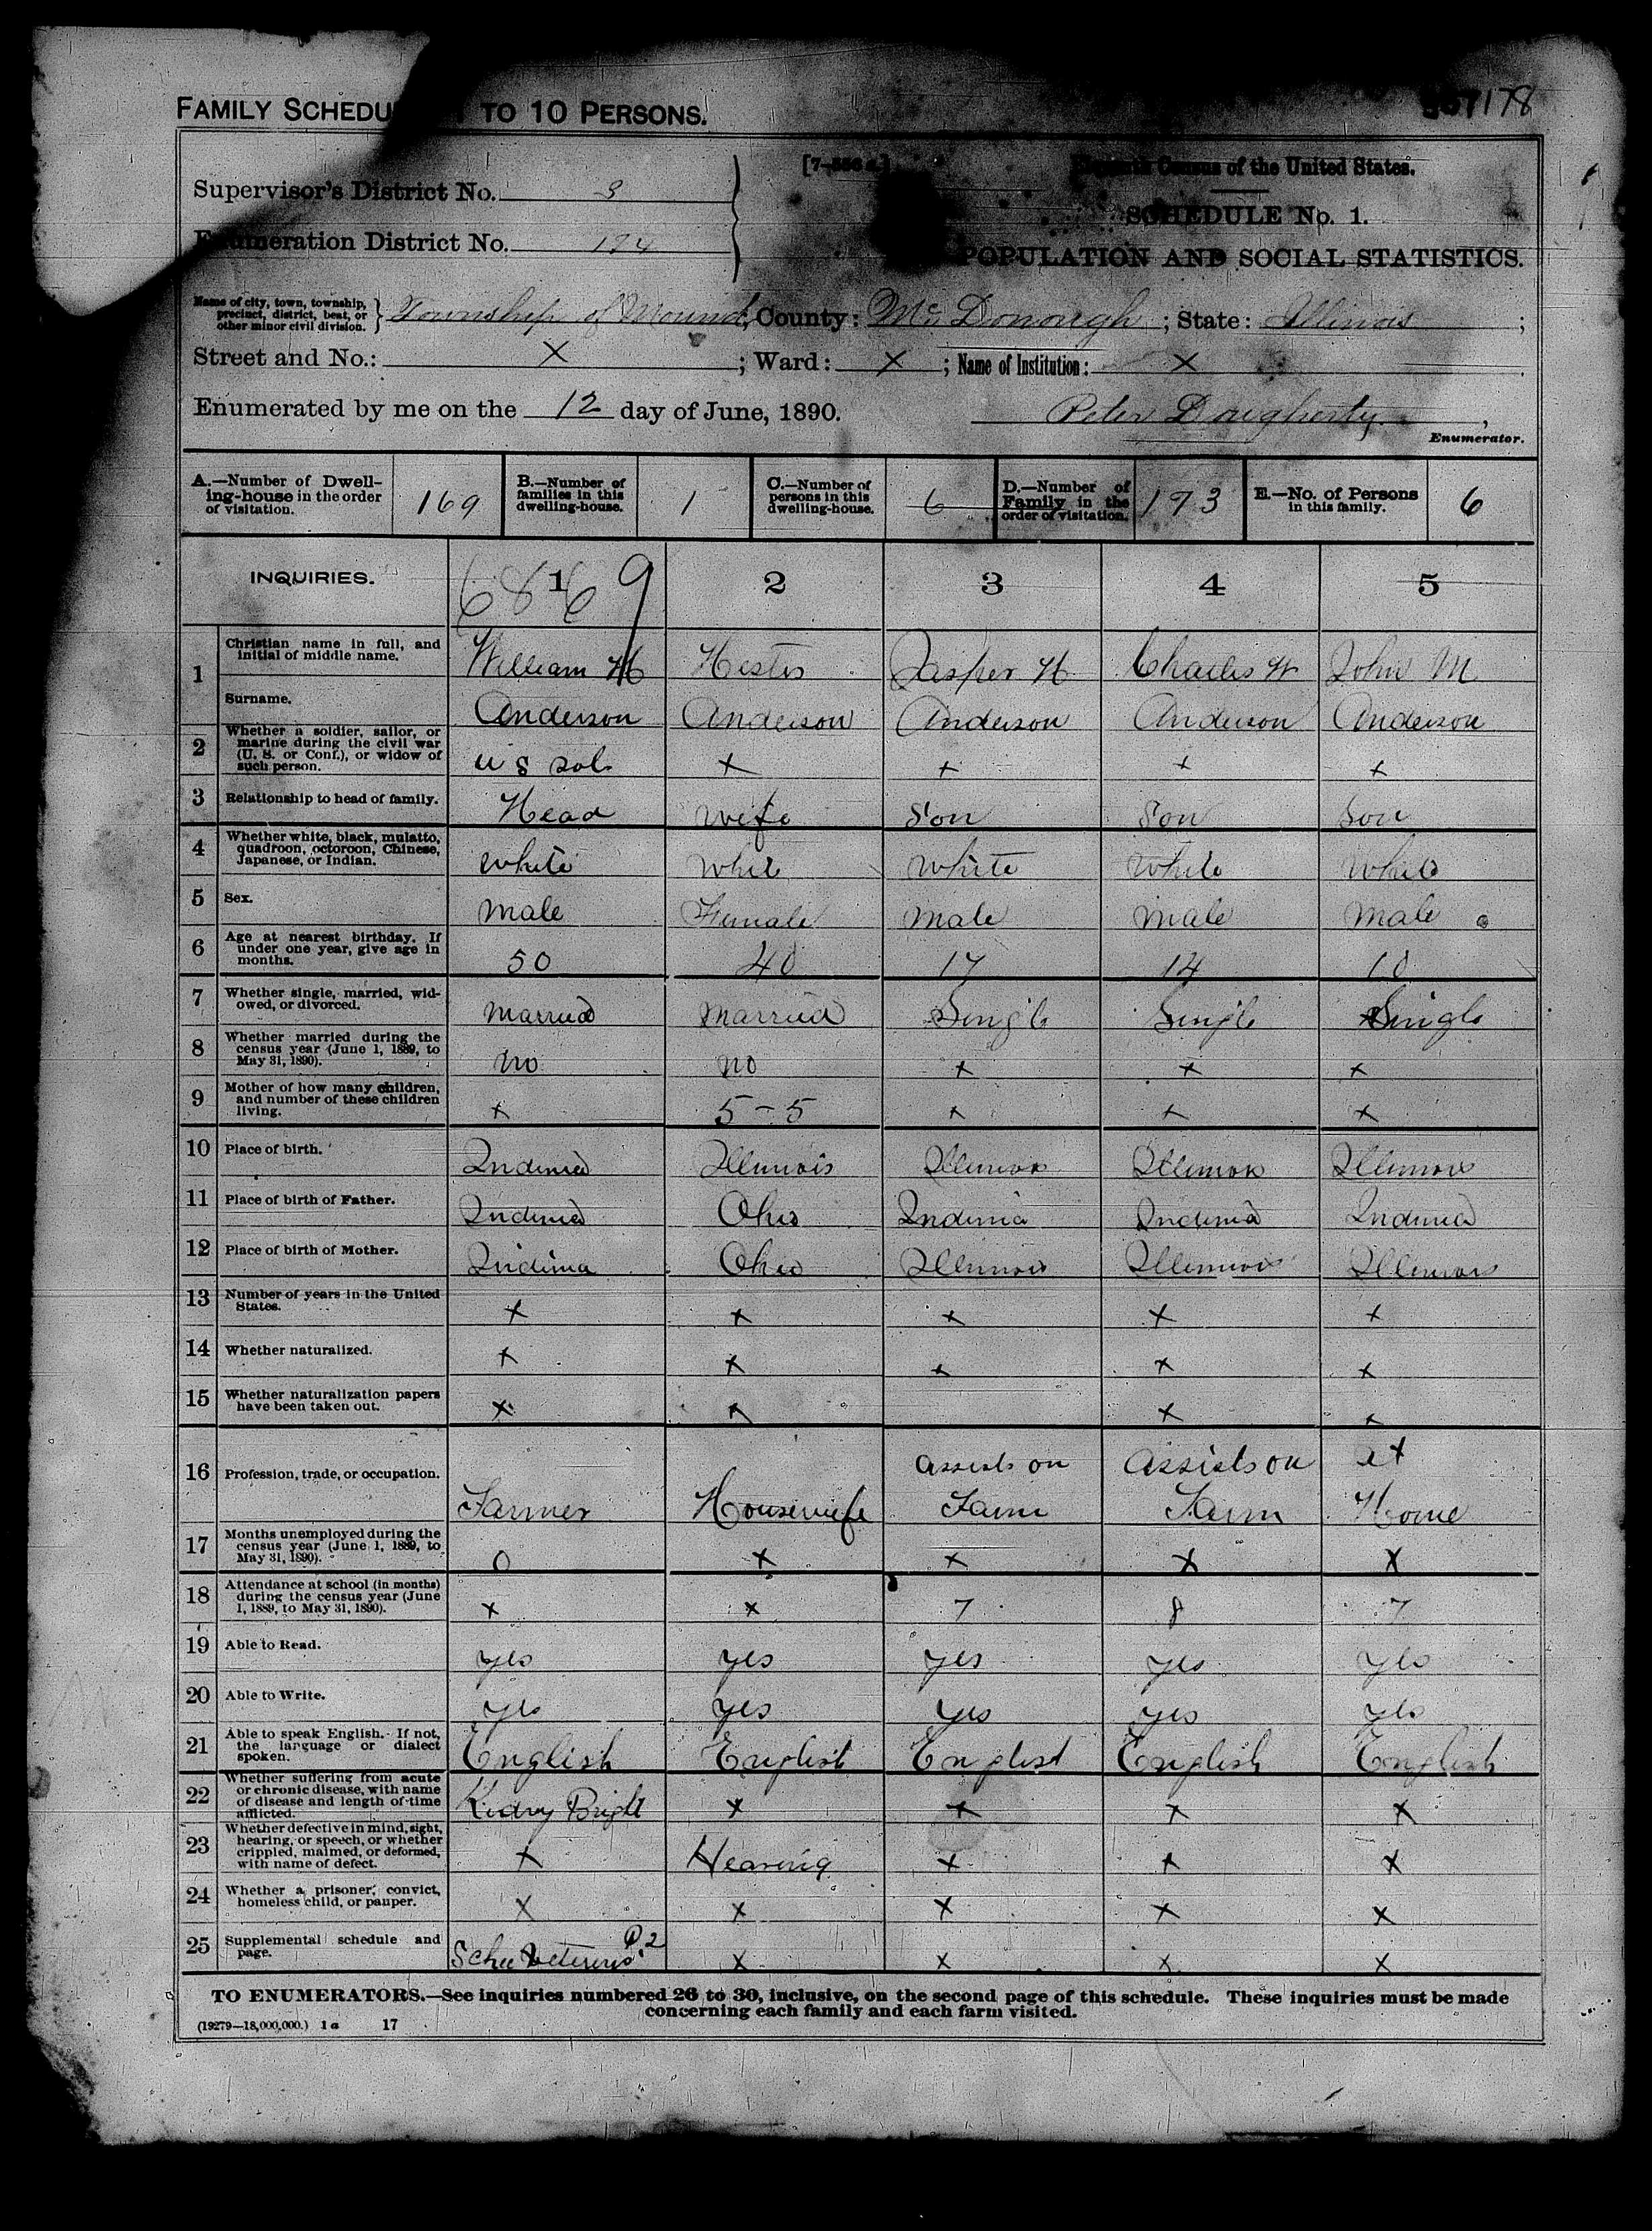 FAMILY SCHEDU TO 10 PERSONS.
7178
Supervisor's District No. 3
Enumeration District No. 174
Census of the United States.
SCHEDULE No. 1.
POPULATION AND SOCIAL STATISTICS.
Name of city, town, township, precinct, district, beat, or other minor civil division. } Township of Mound; County: McDonough; State: Illinois;
Street and No.: X; Ward: X; Name of Institution: X
Enumerated by me on the 12 day of June, 1890. Peter Dougherty,
Enumerator.
A.—Number of Dwelling-house in the order of visitation. 169 B.—Number of families in this dwelling-house. 1 C.—Number of persons in this dwelling-house. 6 D.—Number of Family in the order of visitation. 173 E.—No. of Persons in this family. 6
INQUIRIES. 1 2 3 4 5
6869
1 Christian name in full, and initial of middle name. William H Hester Jasper H Charles W John M
Surname. Anderson Anderson Anderson Anderson Anderson
2 Whether a soldier, sailor, or marine during the civil war (U. S. or Conf.), or widow of such person. U S Sol x x x x
3 Relationship to head of family. Head Wife Son Son Son
4 Whether white, black, mulatto, quadroon, octoroon, Chinese, Japanese, or Indian. White Whit White White White
5 Sex. Male Female Male Male Male
6 Age at nearest birthday. If under one year, give age in months. 50 40 17 14 10
7 Whether single, married, widowed, or divorced. Married Married Single Single Single
8 Whether married during the census year (June 1, 1889, to May 31, 1890). No No x x x
9 Mother of how many children, and number of these children living. x 5-5 x x x
10 Place of birth. Indiana Illinois Illinois Illinois Illinois
11 Place of birth of Father. Indiana Ohio Indiana Indiana Indiana
12 Place of birth of Mother. Indiana Ohio Illinois Illinois Illinois
13 Number of years in the United States. x x x x x
14 Whether naturalized. x x x x x
15 Whether naturalization papers have been taken out. x x x x
16 Profession, trade, or occupation. Farmer Housewife Assists on Farm Assists on Farm At Home
17 Months unemployed during the census year (June 1, 1889, to May 31, 1890). 0 x x x x
18 Attendance at school (in months) during the census year (June 1, 1889, to May 31, 1890). x x 7 8 7
19 Able to Read. yes yes yes yes yes
20 Able to Write. yes yes yes yes yes
21 Able to speak English. If not, the language or dialect spoken. English English English English English
22 Whether suffering from acute or chronic disease, with name of disease and length of time afflicted. Kidny Bright x x x x
23 Whether defective in mind, sight, hearing, or speech, or whether crippled, maimed, or deformed, with name of defect. x Hearing x x x
24 Whether a prisoner, convict, homeless child, or pauper. x x x x x
25 Supplemental schedule and page. P.2 x x x x
TO ENUMERATORS.—See inquiries numbered 26 to 30, inclusive, on the second page of this schedule. These inquiries must be made
concerning each family and each farm visited.
(19279—18,000,000.) 1 a 17